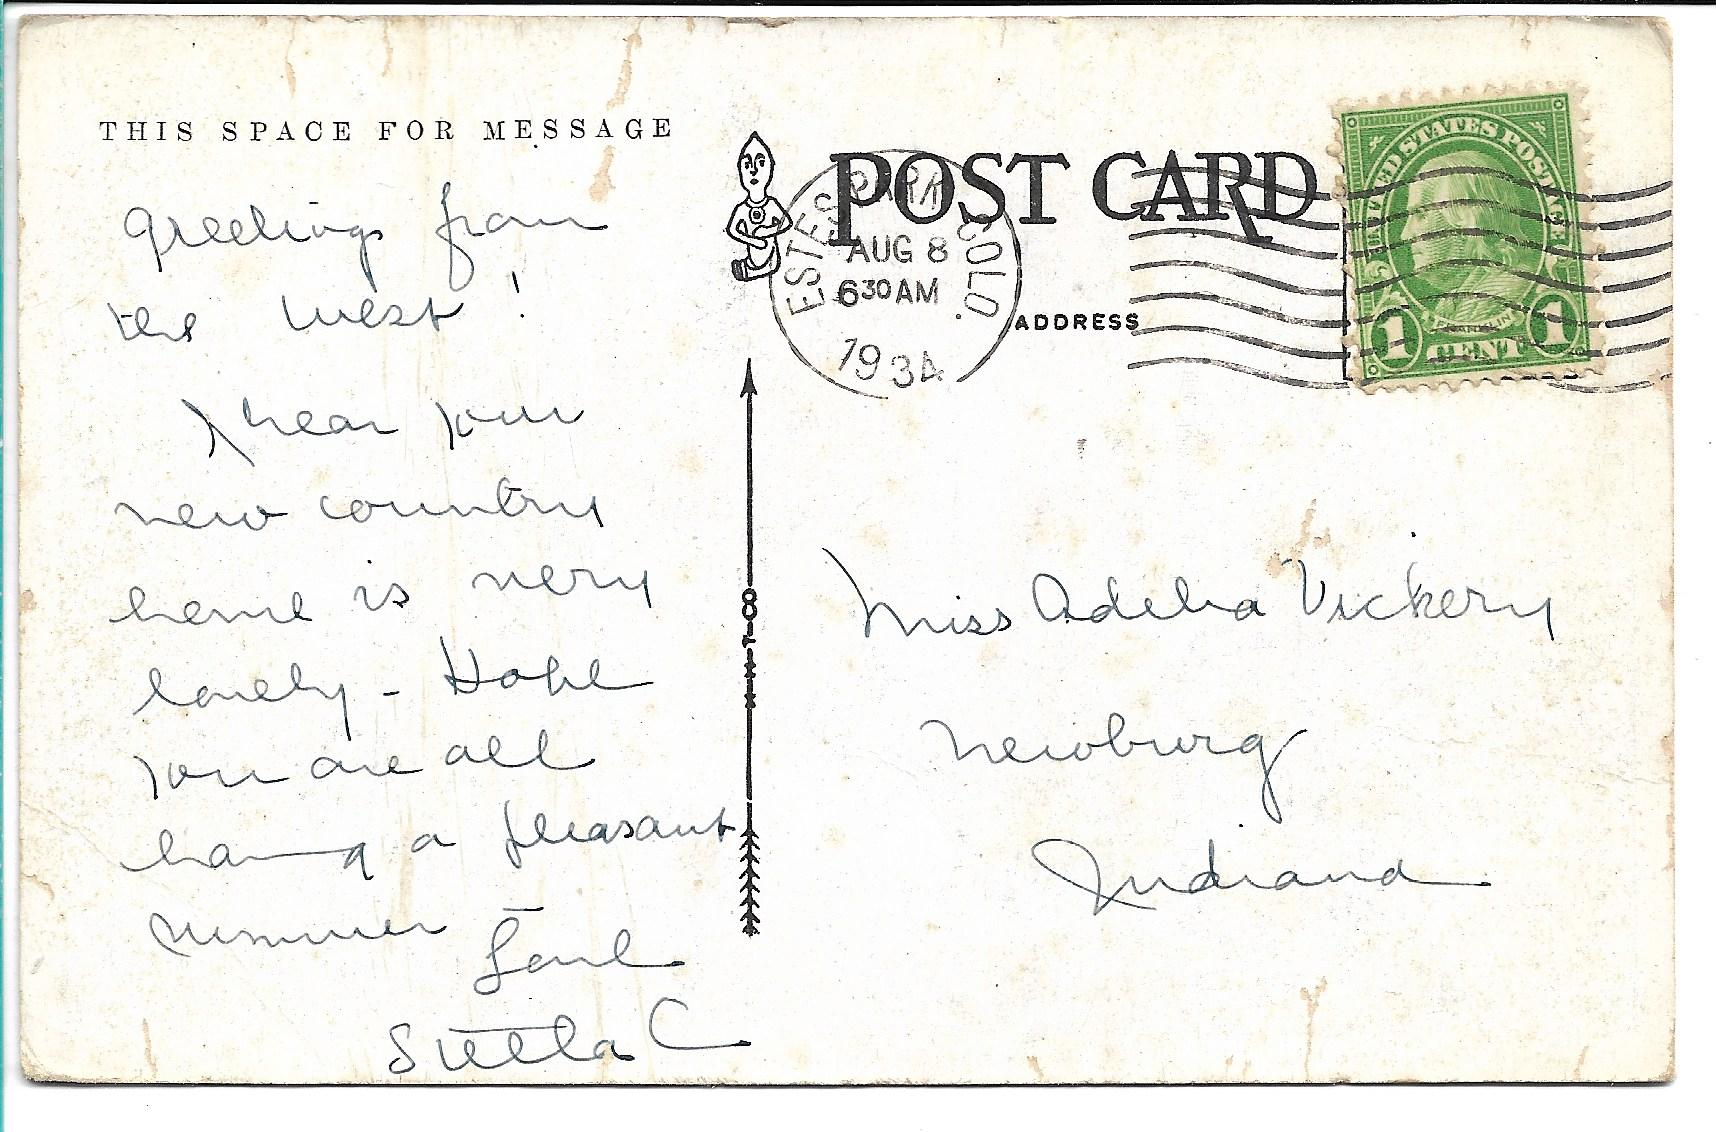 THIS SPACE FOR MESSAGE
Greetings from
the West!
I hear your
new country
home is very
lovely - Hope
you are all
having a pleasant
summer -
Love
Stella C
POST CARD
ESTES PARK COLO.
AUG 8
6 30 AM
1934
ADDRESS
UNITED STATES POSTAGE
FRANKLIN
1 CENT 1
Miss Adelia Vickery
Newburg
Indiana